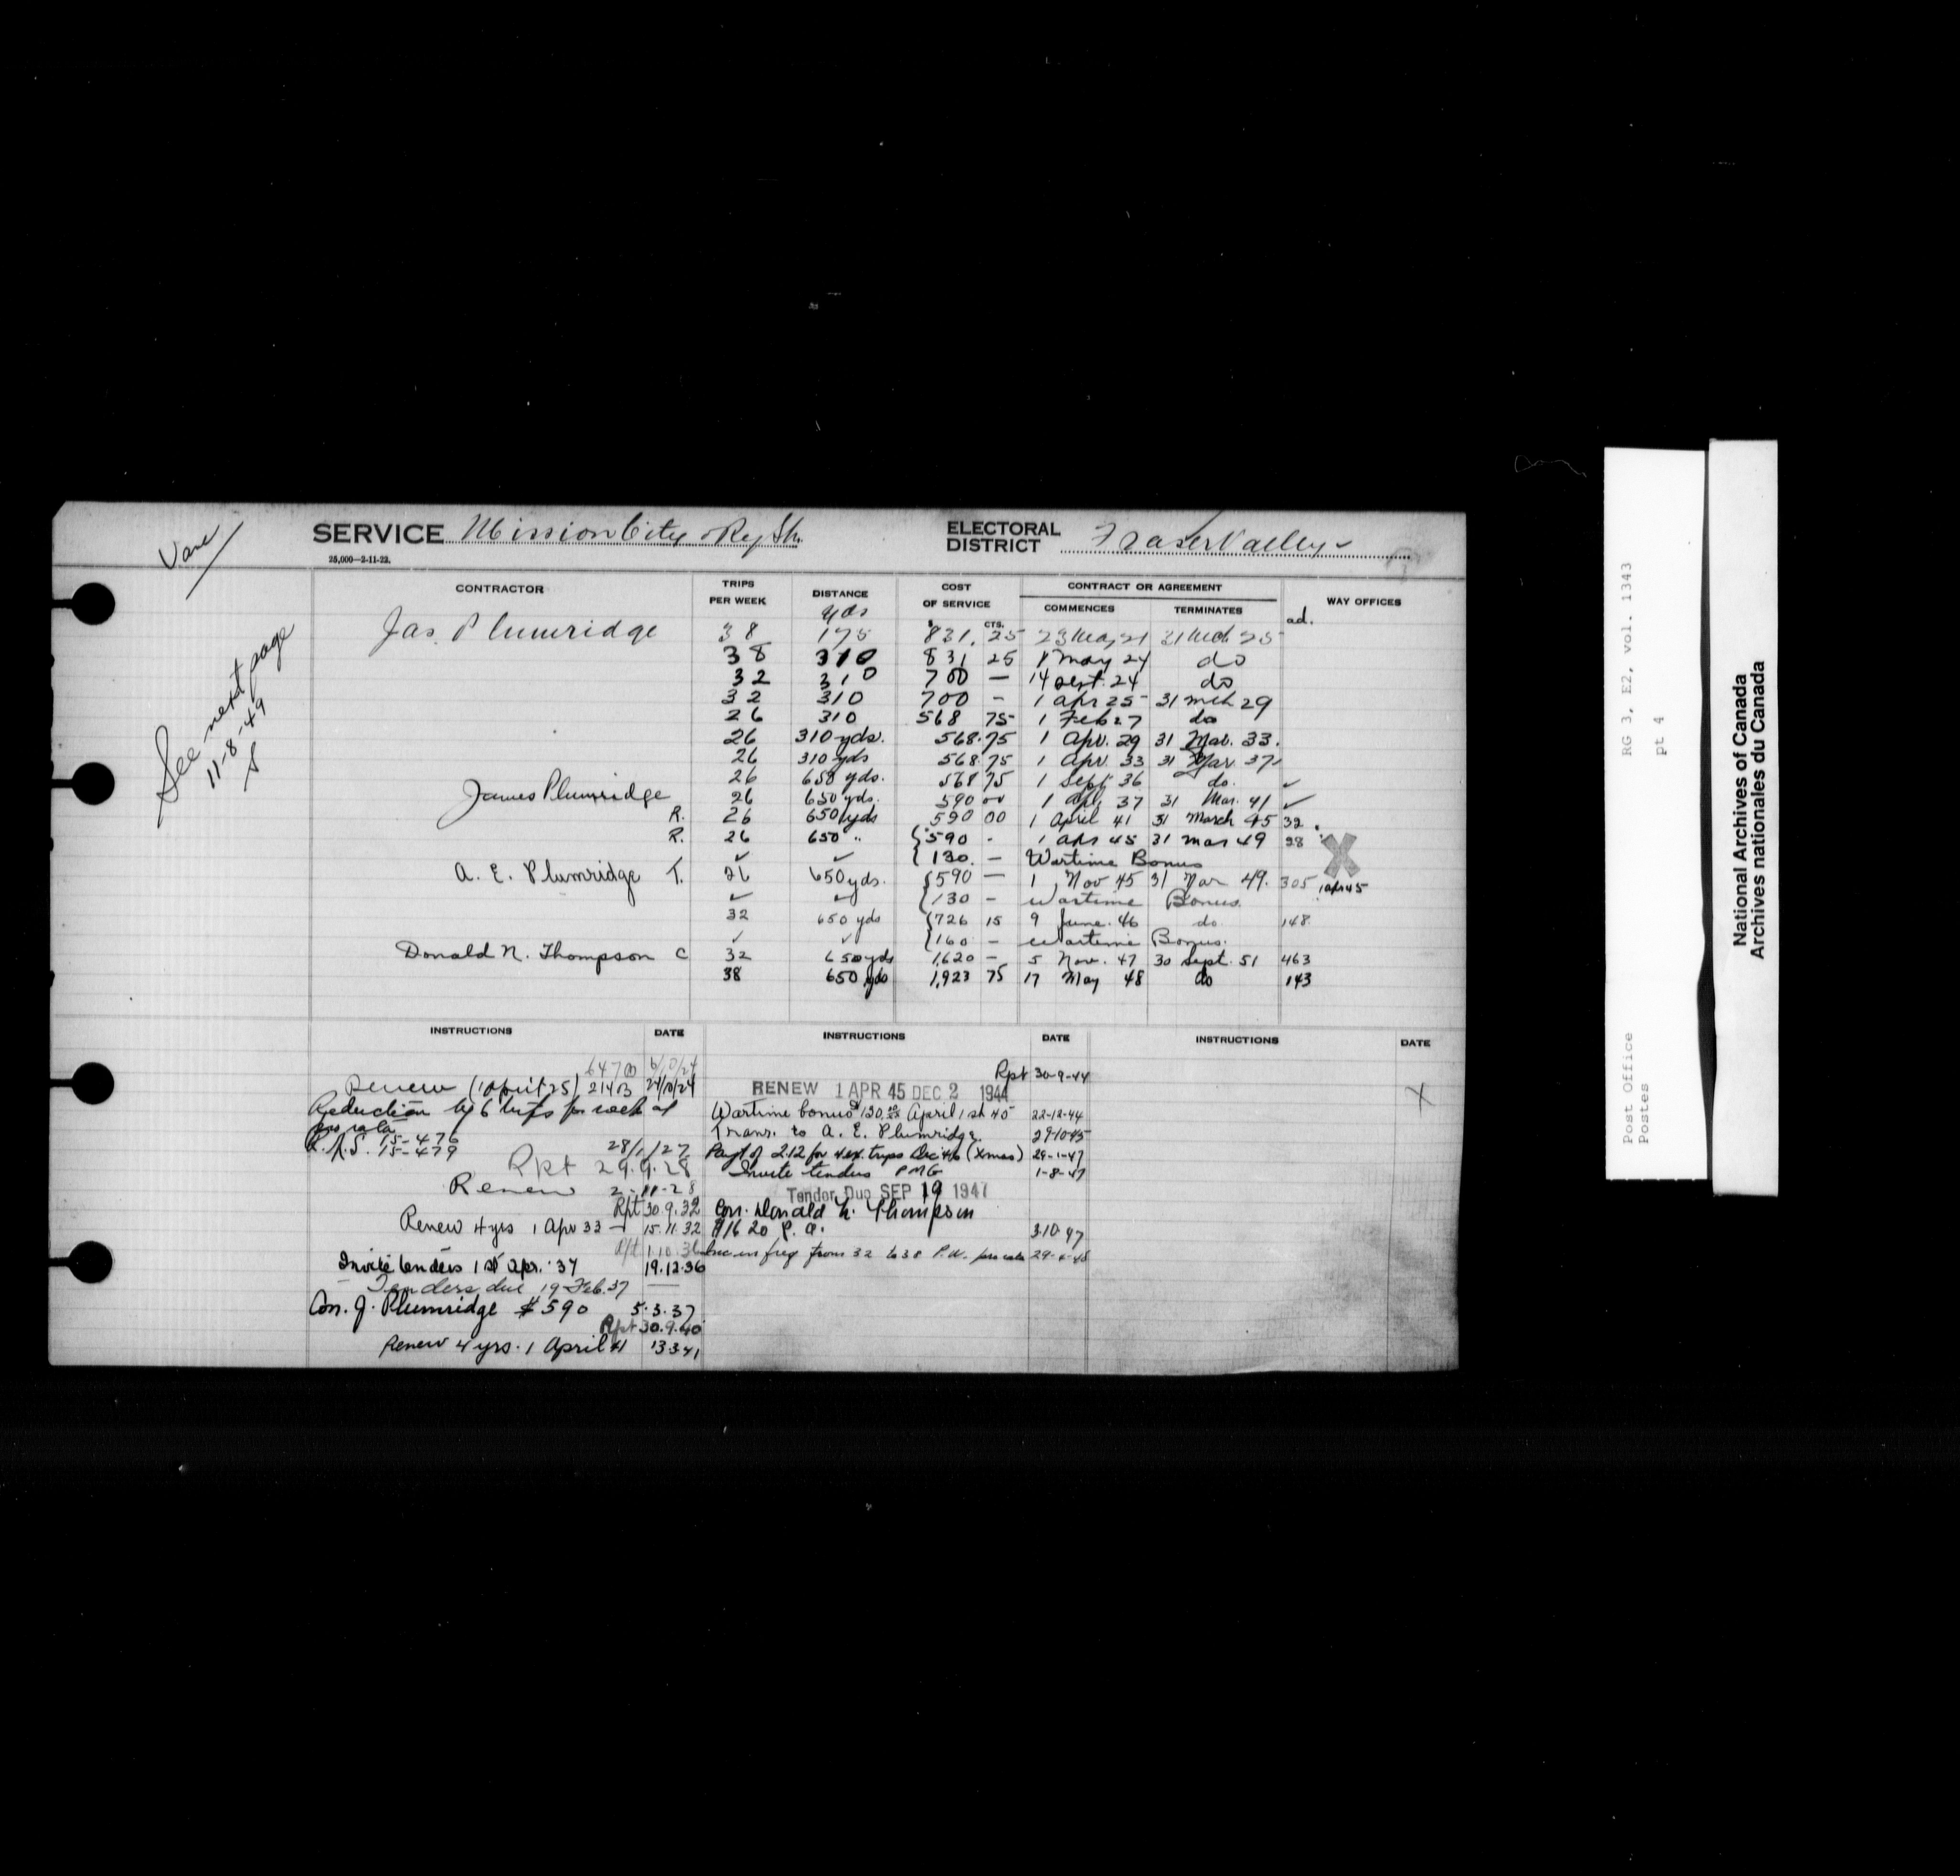 Vanc
SERVICE Mission City & Ry Stn.
ELECTORAL DISTRICT Fraser Valley
25,000—2-11-22.
CONTRACTOR TRIPS PER WEEK DISTANCE COST OF SERVICE CONTRACT OR AGREEMENT COMMENCES TERMINATES WAY OFFICES
yds $ CTS. ad.
Jas. Plumridge 38 175 831. 25 23 May 21 31 Mch 25
38 310 831 25 1 May 24 do
32 310 700 — 14 Sept. 24 do
32 310 700 - 1 Apr 25 31 Mch 29
26 310 568 75 1 Feb 27 do
26 310 yds. 568.75 1 Apr. 29 31 Mar. 33.
26 310 yds 568.75 1 Apr 33 31 Mar 37
26 650 yds. 568 75 1 Sept 36 do. ✓
James Plumridge 26 650 yds. 590 00 1 Apl 37 31 Mar. 41 ✓
R. 26 650 yds 590 00 1 April 41 31 March 45 32
R. 26 650 " {590 - 1 Apr 45 31 Mar 49 98 X
✓ ✓ {130. — Wartime Bonus
A. E. Plumridge T. 26 650 yds. {590 — 1 Nov 45 31 Mar 49. 305 1 Apr 45
✓ ✓ {130 - Wartime Bonus.
32 650 yds {726 15 9 June. 46 do 148
✓ ✓ {160 - Wartime Bonus.
Donald N. Thompson C 32 650 yds 1,620 — 5 Nov. 47 30 Sept. 51 463
38 650 yds 1,923 75 17 May 48 do 143
See next page
11-8-49
INSTRUCTIONS DATE INSTRUCTIONS DATE INSTRUCTIONS DATE
Renew (1 April 25) 214B 24/10/24
Reduction by 6 trips per week at
pro rata
R.A.S. 15-476
15-479 28/1/27
Rpt 29.9.28
Renew 2-11-28
Rpt 30.9.32
Renew 4 yrs 1 Apr 33 — 15.11.32
Rpt 1.10.36
Invite tenders 1st Apr. '37 19.12.36
Tenders due 19 Feb. 37 —
Con. J. Plumridge $590 5.3.37
Rpt 30.9.40
Renew 4 yrs. 1 April 41 13.3.41
Rpt 30-9-44
RENEW 1 APR 45 DEC 2 1944
Wartime bonus $130.00 April 1st 45 22-12-44
Trans. to A. E. Plumridge. 29-10-45
Payt of 2.12 for 4 ex. trips Dec 46 (Xmas) 29-1-47
Invite tenders PMG 1-8-47
Tender Due SEP 19 1947
Con. Donald N. Thompson
$1620 P.a. 3.10.47
Inc in freq from 32 to 38 P.W. pro rata 29-4-48
X
Post Office RG 3, E2, vol. 1343
Postes pt 4
National Archives of Canada
Archives nationales du Canada